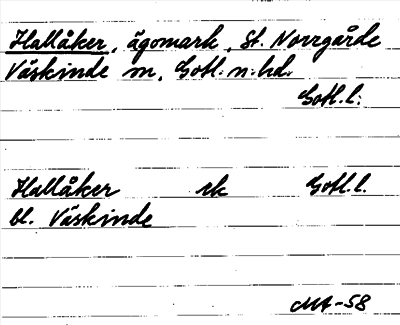 Hallåker, ägomark, St. Norrgårde
Väskinde sn, Gotl. n. hd.
Gotl. l.
Hallåker rk Gotl. l.
bl. Väskinde
-58